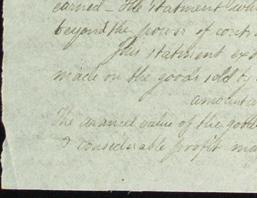 earned - The statment whi
beyond the power of cont
This statment ex
made on the goods sold b
amount a
The avarel value of the good
& considerable profit ma